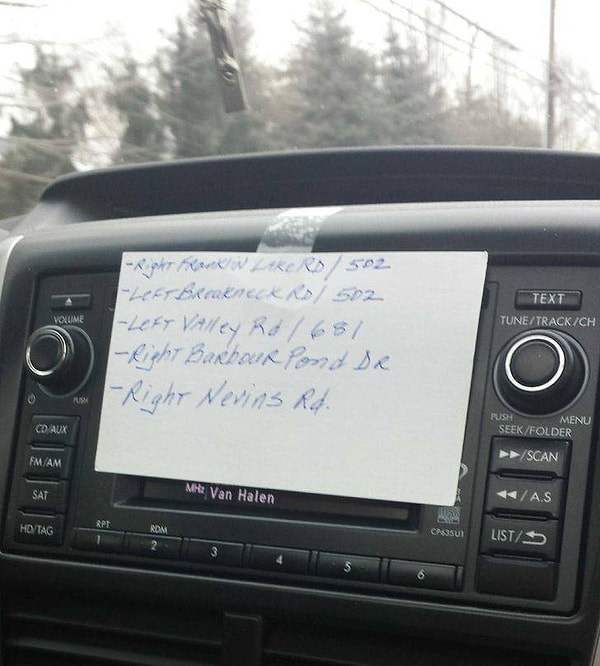 -Right Franklin Lake RD / 502
-Left Breakneck Rd / 502
-Left Valley Rd / 681
-Right Barbour Pond DR
-Right Nevins Rd.
VOLUME
PUSH
CD/AUX
FM/AM
SAT
HD/TAG
TEXT
TUNE/TRACK/CH
PUSH MENU
SEEK/FOLDER
▶▶/SCAN
◀◀/A.S
LIST/
MHz Van Halen
CP635U1
RPT RDM
1 2 3 4 5 6